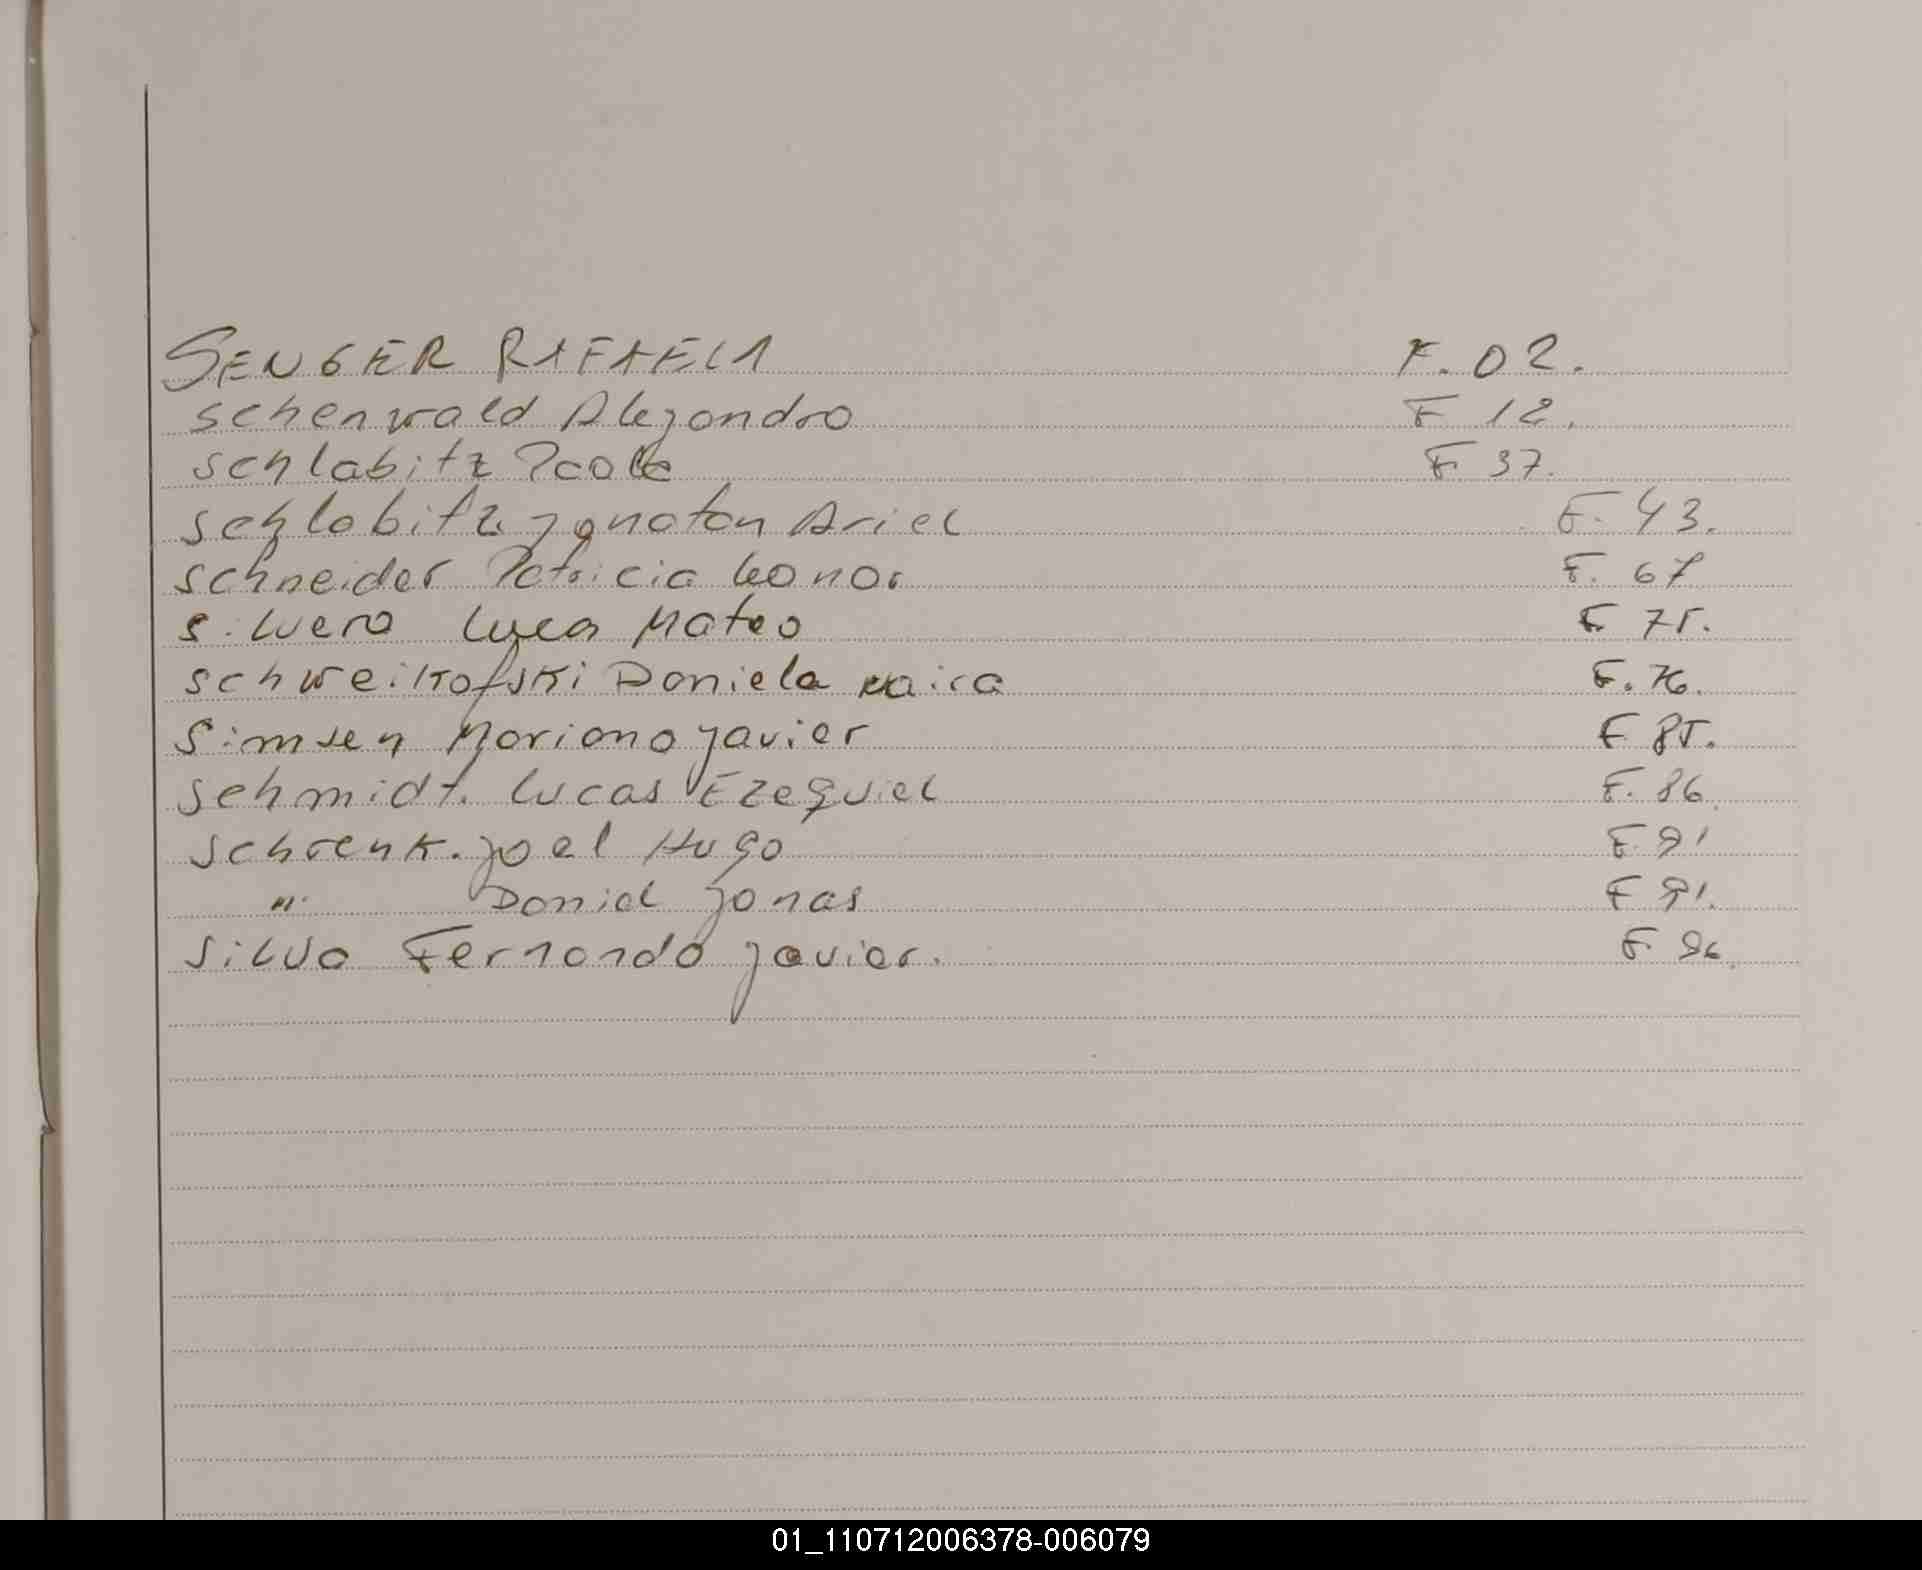 SENGER RAFAELA F. 02.
Schenwald Alejandro F 12.
Schlabitz Paola F 37.
Schlabitz Jonatan Ariel F. 43.
Schneider Patricia Leonor F. 67
Silvero Luca Mateo F 75.
Schweikofski Daniela Naira F. 76.
Simsen Mariano Javier F 85.
Schmidt. Lucas Ezequiel F. 86.
Schrenk. Joel Hugo F. 91
" Daniel Jonas F 91.
Silva Fernando Javier. F 96.
01_110712006378-006079